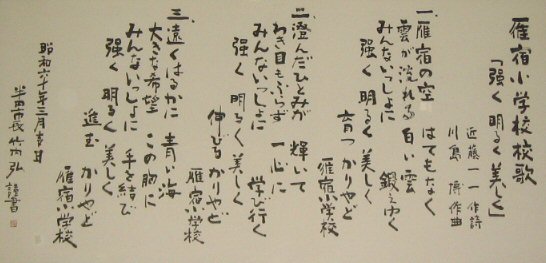 雁宿小学校校歌
「強く明るく美しく」
近藤一一作詩
川島博作曲
一、雁宿の空 はてもなく
雲が流れる 白い雲
みんないっしょに 鍛えゆく
強く 明るく 美しく
育つ かりやど
雁宿小学校
二、澄んだひとみが 輝いて
わき目もふらず 一心に
みんないっしょに 学び行く
強く 明るく 美しく
伸びる かりやど
雁宿小学校
三、遠くはるかに 青い海
大きな希望 この胸に
みんないっしょに 手を結び
強く 明るく 美しく
進む かりやど
雁宿小学校
昭和六十年三月吉日
半田市長 竹内弘 謹書